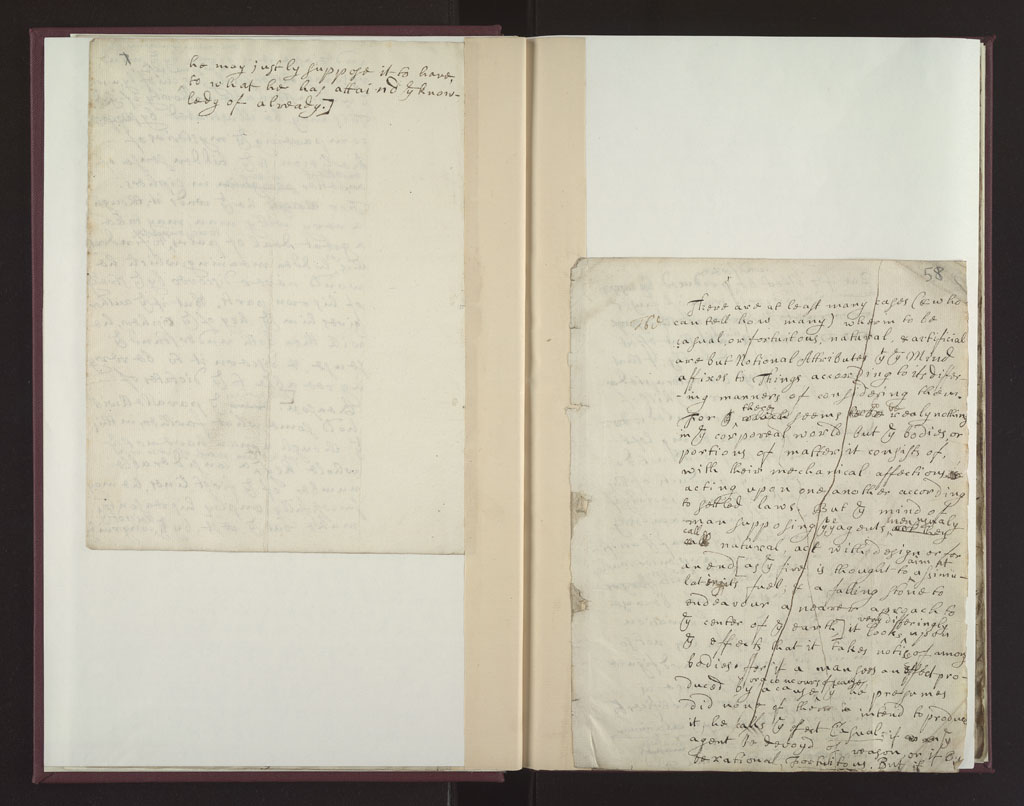 he may justly suppose it to have,
to what he has attaind ye know-
ledg of already.]
58
There are at least many cases (& who
can tell how many) wherin to be
casual, or fortuitous, natural, & artificial
are but Notional Attributes yt ye Mind
affixes to Things according to its differ-
-ing manners of considering them.
For there seems to be realy nothing
in ye corporeal world but ye bodies, or
portions of matter it consists of,
with their mechanical affections
acting upon one another according
to setled laws. But ye mind of
man supposing yt agents, men usualy
call natural, act with design or for
an end [as ye fire is thought to aim at
fuel; & a falling stone to
endeavour a nearer aproach to
ye center of ye earth,] it looks very differingly upon
ye effects that it takes notice of among
bodies. for if a man sees an effect pro-
duced by a cause or a concourse of causes yt he presumes
did none of them intend to produce
it, he calls ye effect Casual; if
agent is devoyd of reason or if
be rational, Fortuitous. But if